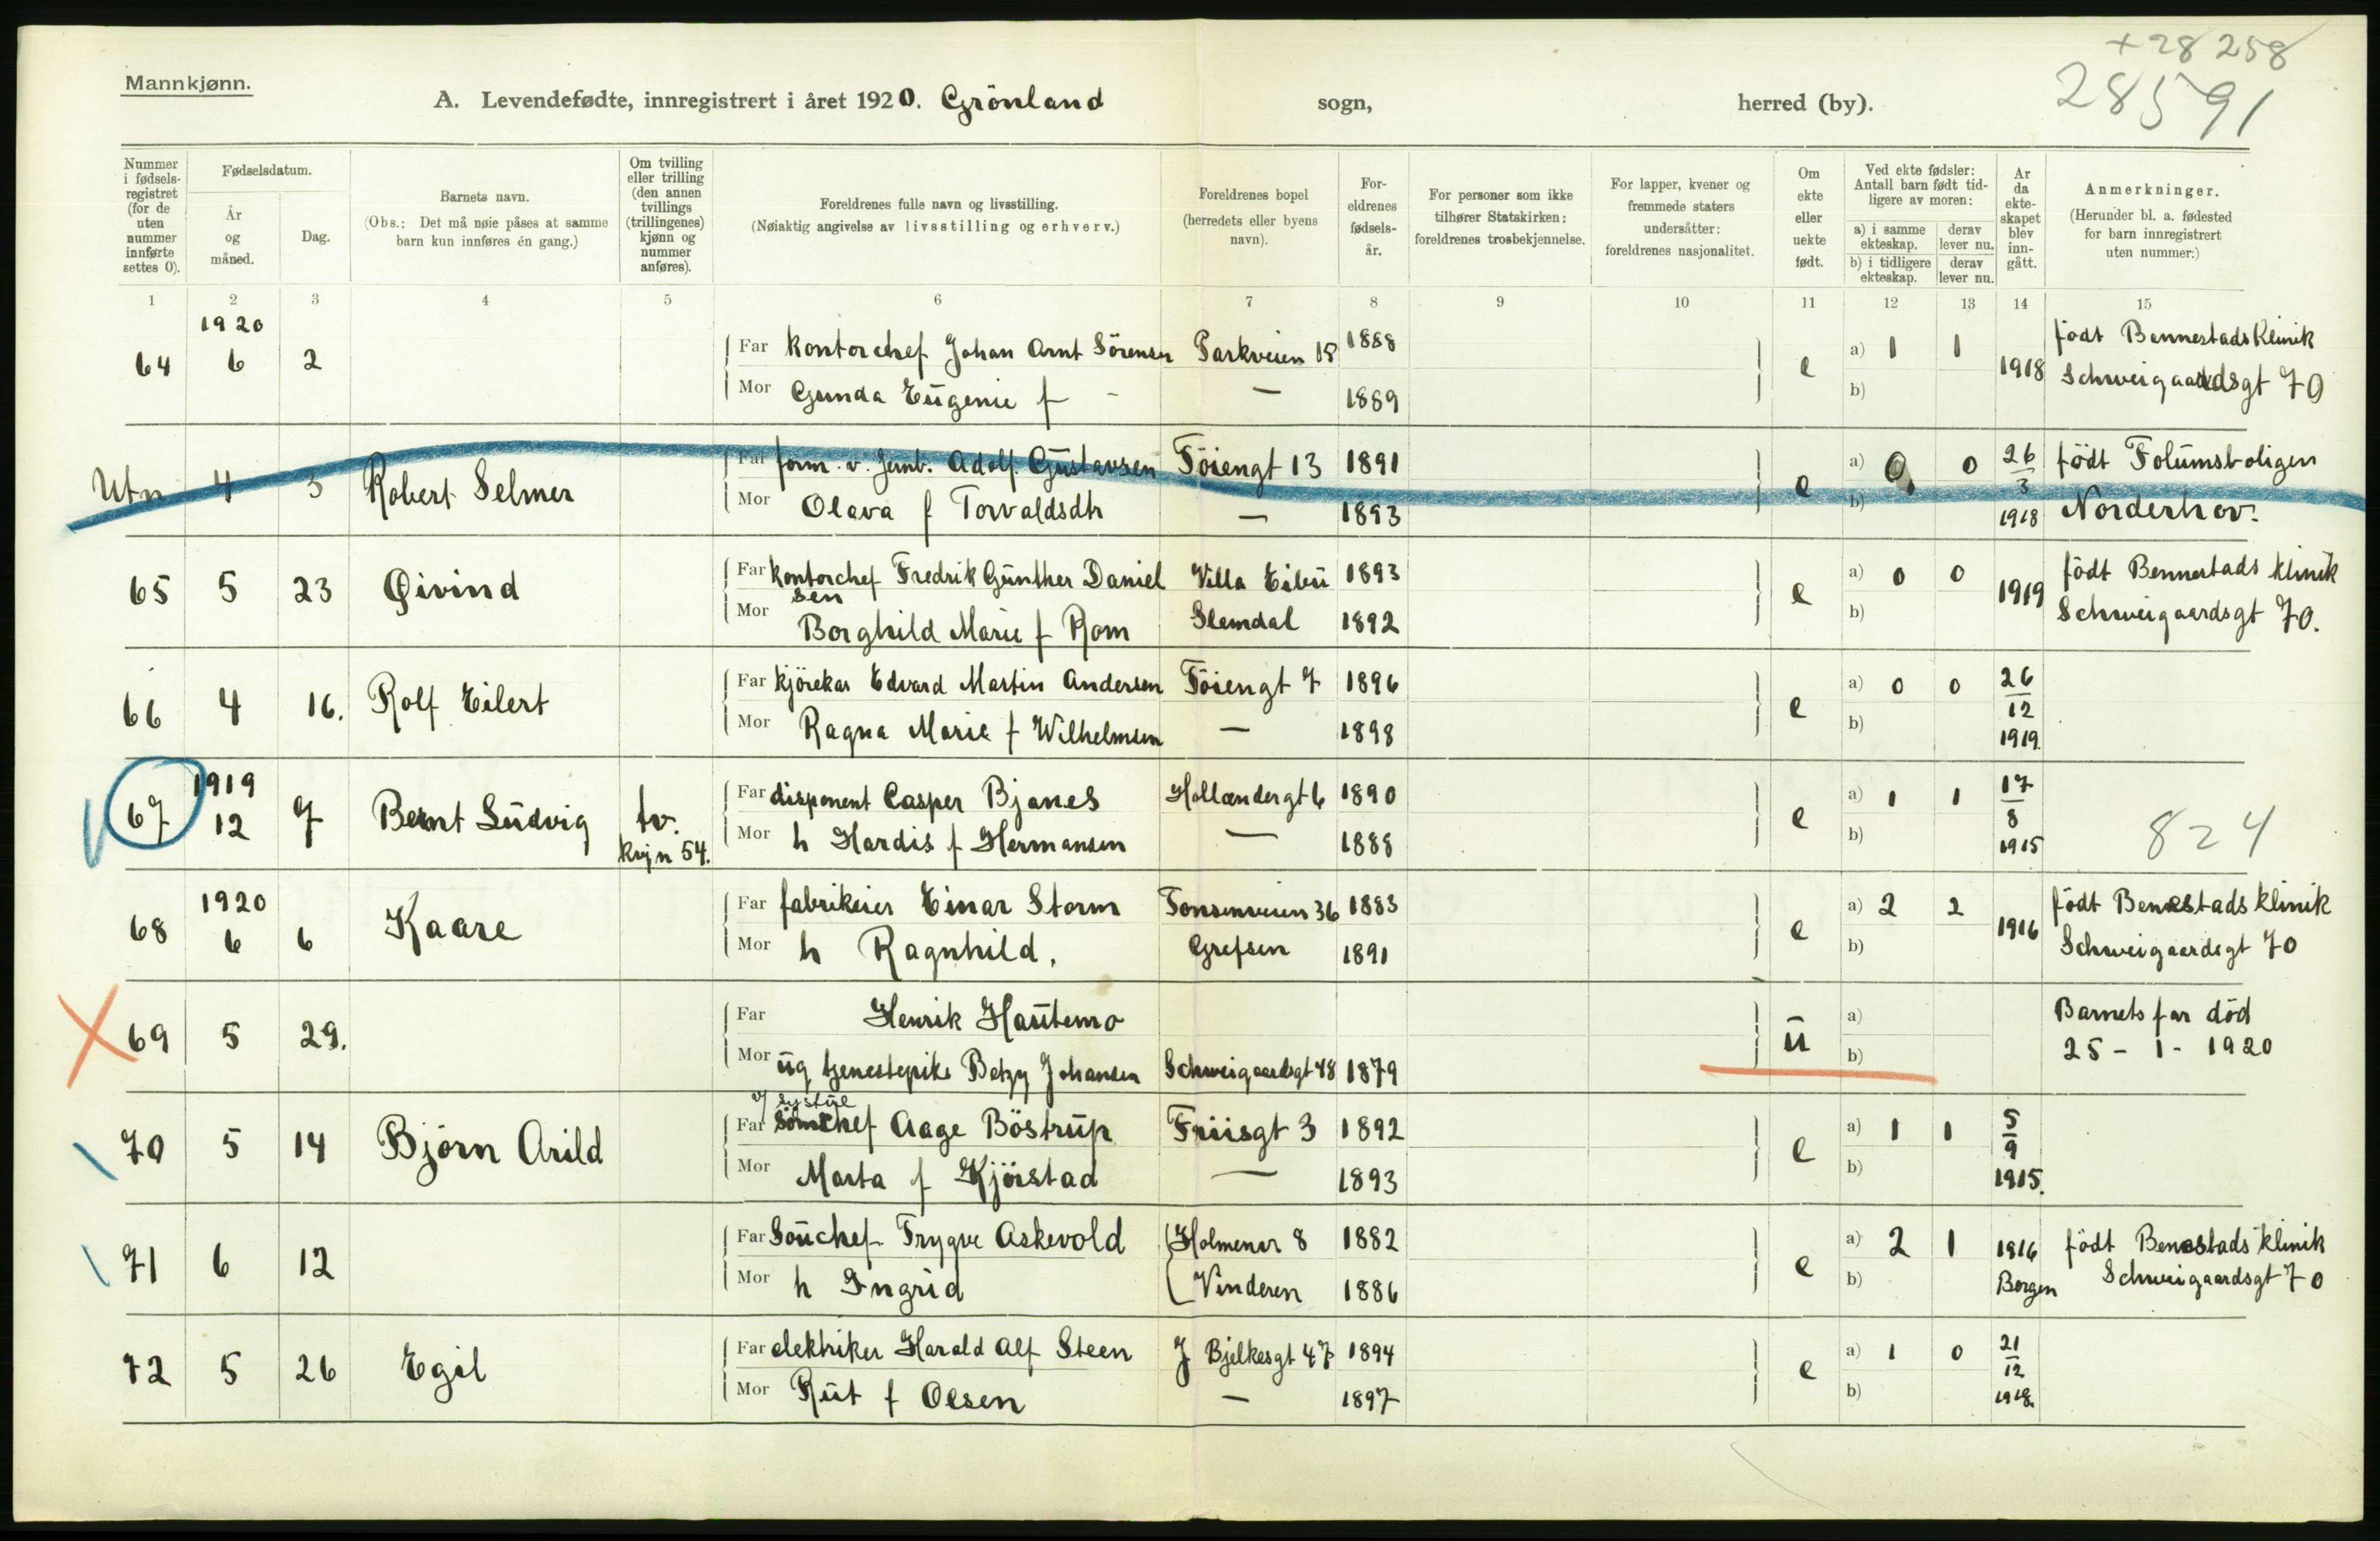 +28 258
28591
Mannkjønn.
A. Levendefødte, innregistrert i året 1920. Grönland sogn, herred (by).
Nummer i fødsels-registret (for de uten nummer innførte settes 0).
Fødselsdatum.
År og måned.
Dag.
Barnets navn.
(Obs.: Det må nøie påses at samme barn kun innføres én gang.)
Om tvilling eller trilling (den annen tvillings (trillingenes) kjønn og nummer anføres).
Foreldrenes fulle navn og livsstilling.
(Nøiaktig angivelse av livsstilling og erhverv.)
Foreldrenes bopel (herredets eller byens navn).
For-eldrenes fødsels-år.
For personer som ikke tilhører Statskirken: foreldrenes trosbekjennelse.
For lapper, kvener og fremmede staters undersåtter: foreldrenes nasjonalitet.
Om ekte eller uekte født.
Ved ekte fødsler: Antall barn født tid-ligere av moren:
a) i samme ekteskap. derav lever nu.
b) i tidligere ekteskap. derav lever nu.
Ar da ekte-skapet blev inn-gått.
Anmerkninger.
(Herunder bl. a. fødested for barn innregistrert uten nummer.)
1 2 3 4 5 6 7 8 9 10 11 12 13 14 15
1920
64 6 2 Far kontorchef Johan Arnt Sörensen Parkveien 18 1888 e a) 1 1 1918 födt Bennestads Klinik
Mor Gunda Eugenie f - — 1889 b) Schweigaardsgt 70
Utn 4 3 Robert Selmer Far form. v. Jernb. Adolf Gustavsen Töiengt 13 1891 e a) 0 0 26/3 1918 födt Folumsboligen
Mor Olava f Torvaldsdtr — 1893 b) Norderhov.
65 5 23 Øivind Far kontorchef Fredrik Günther Daniel Villa Eibü 1893 e a) 0 0 1919 födt Bennestads klinik
sen
Mor Borghild Marie f Rom Slemdal 1892 b) Schweigaardsgt 70.
66 4 16. Rolf Eilert Far kjörekar Edvard Martin Andersen Töiengt 7 1896 e a) 0 0 26/12 1919.
Mor Ragna Marie f Wilhelmsen — 1898 b)
1919
67 12 7 Bernt Ludvig tv. kvjn 54. Far disponent Casper Bjanes Hollændergt 6 1890 e a) 1 1 17/8 1915 824
Mor h Hardis f Hermansen — 1888 b)
1920
68 6 6 Kaare Far fabrikeier Einar Storm Tonsenveien 36 1883 e a) 2 2 1916 födt Benestads klinik
Mor h Ragnhild. Grefsen 1891 b) Schweigaardsgt 70
69 5 29. Far Henrik Hautemo ü a) Barnets far död
Mor üg tjenestepike Betzy Johansen Schweigaardsgt 48 1879 b) 25 - 1 - 1920
v/ systue
70 5 14 Björn Arild Far chef Aage Böstrup Friisgt 3 1892 e a) 1 1 5/9 1915.
Mor Marta f Kjörstad — 1893 b)
71 6 12 Far Souchef Trygve Askevold Holmenvr 8 1882 e a) 2 1 1916 födt Benestads klinik
Mor h Ingrid Vinderen 1886 b) Bergen Schweigaardsgt 70
72 5 26 Egil Far elektriker Harald Alf Steen J Bjelkesgt 47 1894 e a) 1 0 21/12 1918.
Mor Rut f Olsen — 1897 b)